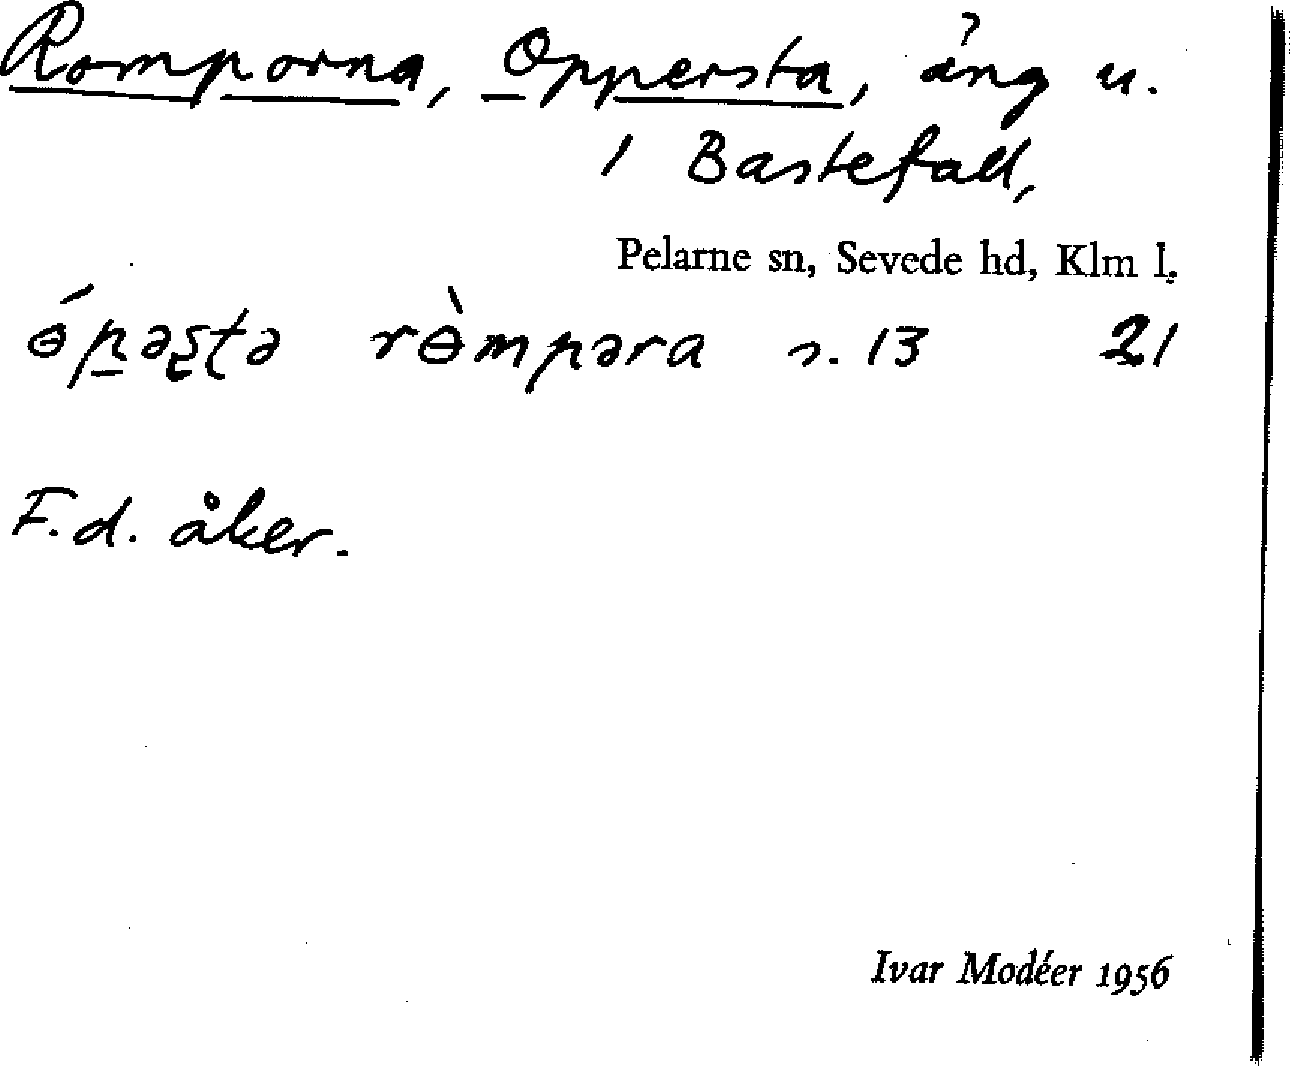 Romporna, Oppersta, äng u.
1 Bastefall,
Pelarne sn, Sevede hd, Klm l.
ɵ́p̠əʂʈə rɵ̀mpəra s. 13 21
F.d. åker.
Ivar Modéer 1956